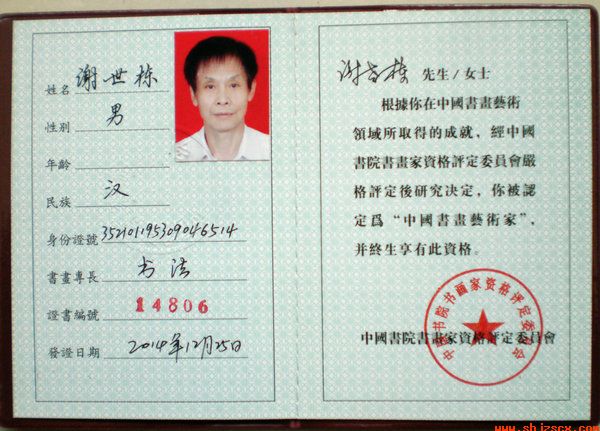 姓名 谢世栋
性别 男
年齡
民族 汉
身份證號 352101195309046514
書畫專長 书法
證書編號 14806
發證日期 2014年12月25日
谢世栋 先生/女士
根據你在中國書畫藝術
領域所取得的成就，經中國
書院書畫家資格評定委員會嚴
格評定後研究决定，你被認
定爲“中國書畫藝術家”，
并終生享有此資格。
中国书院书画家资格评定委员会
中國書院書畫家資格評定委員會
www.shjzscx.com